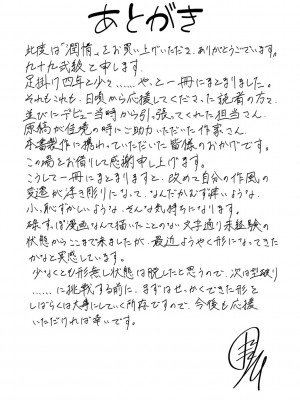 あとがき
此度は「潤情」をお買い上げいただき、ありがとうございます。
九十九弐級と申します。
足掛け四年と少々……や、と一冊にまとまりました。
それもこれも、日頃から応援してくださった読者の方々、
並びにデビュー当時から引っ張ってくれた担当さん、
原稿が佳境の時にご助力いただいた作家さん、
本書製作に携わっていただいた皆様のおかげです。
この場をお借りして感謝申し上げます。
こうして一冊にまとまりますと、改めて自分の作風の
変遷が浮き彫りになって、なんだかむず痒いような、
小っ恥ずかしいような、そんな気持ちになります。
碌すっぽ漫画なんて描いたことのない文字通り未経験の
状態からここまで来ましたが、最近ようやく形になってきた
かなと実感しています。
少なくとも形無し状態は脱したと思うので、次は型破り
……に挑戦する前に、まずはせっかくできた形を
しばらくは大事にしていく所存ですので、今後も応援
いただければ幸いです。